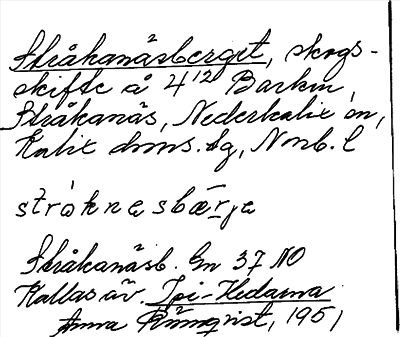 Stråkanäsberget, skogs-
skifte å 4¹² Barkin,
Stråkanäs, Nederkalix sn,
Kalix doms.sg, Norrb. l
stråknasbærje
Stråkanäsb. Gn 37 NO
Kallas äv. Ipi-Hedarna
Anna Rönnqvist, 1951